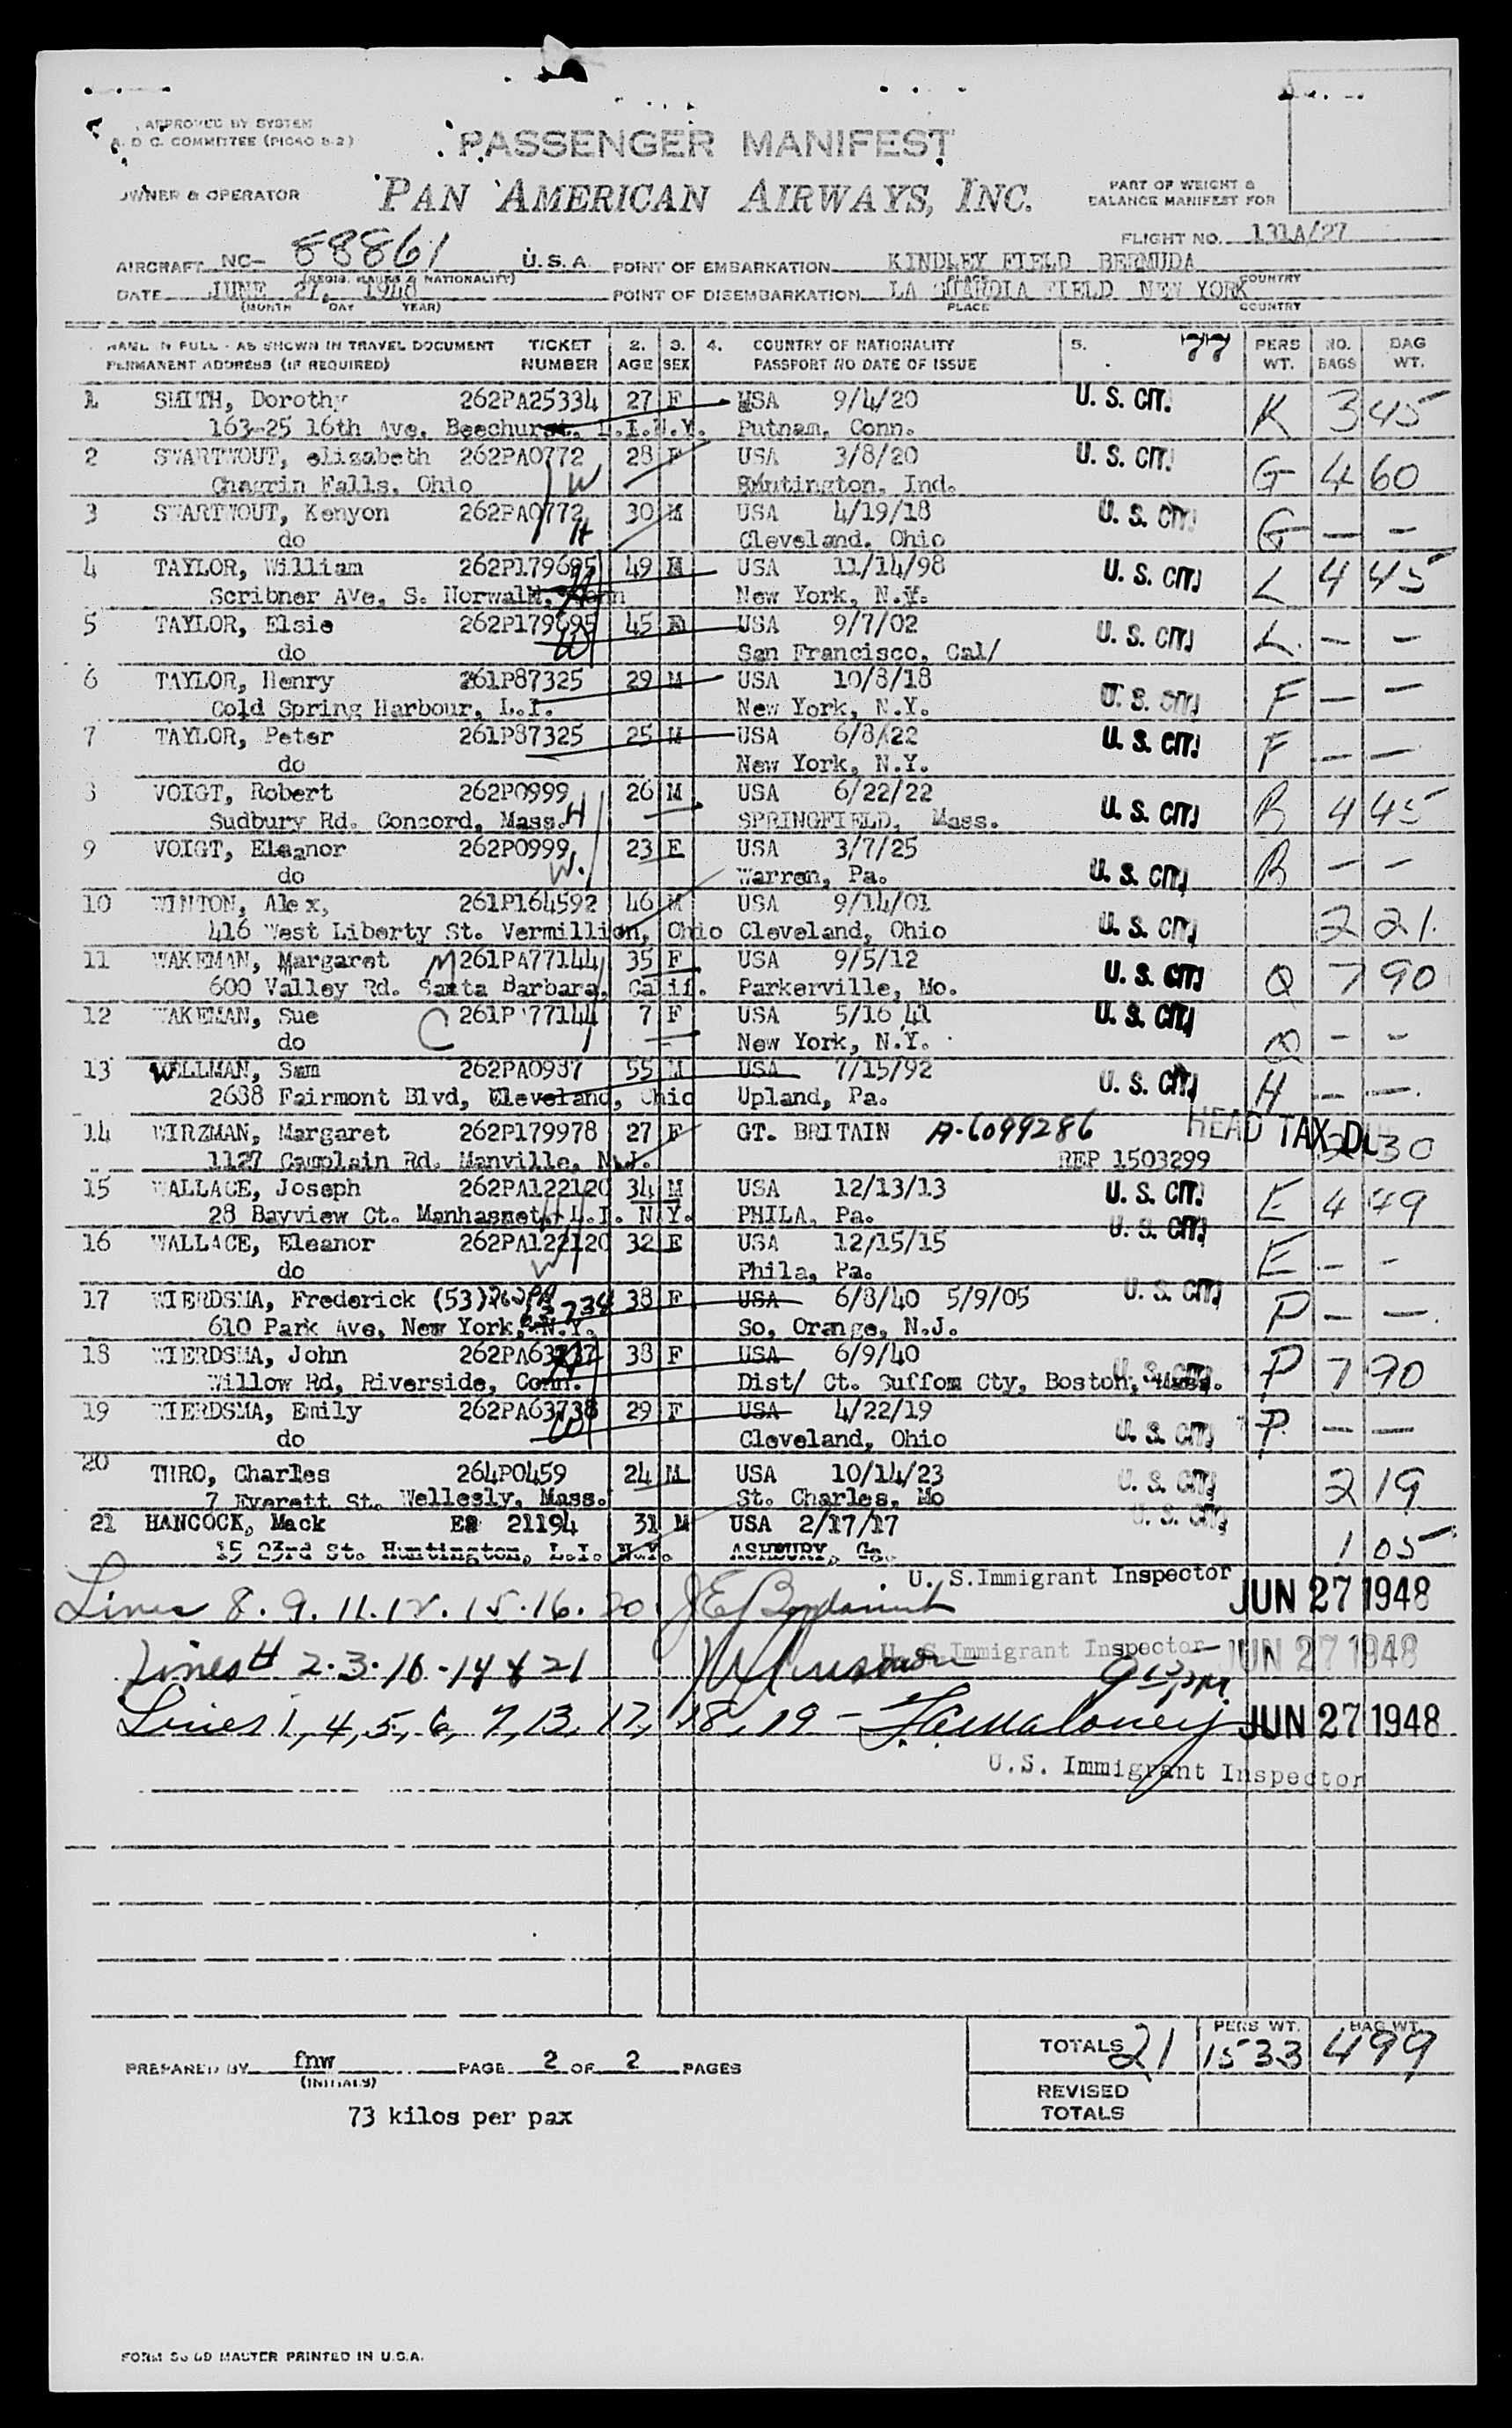 APPROVED BY SYSTEM
A. O C. COMMITTEE (PICAO 8-2)
PASSENGER MANIFEST
OWNER & OPERATOR
PAN AMERICAN AIRWAYS, INC.
PART OF WEIGHT &
BALANCE MANIFEST FOR
FLIGHT NO. 131A/27
AIRCRAFT NC- 88861 U.S.A. POINT OF EMBARKATION KINDLEY FIELD BERMUDA
(REGIS. MARKS & NATIONALITY) PLACE COUNTRY
DATE JUNE 27, 1948 POINT OF DISEMBARKATION LA GUARDIA FIELD NEW YORK
(MONTH DAY YEAR) PLACE COUNTRY
NAME IN FULL - AS SHOWN IN TRAVEL DOCUMENT TICKET 2. 3. 4. COUNTRY OF NATIONALITY 5. 77 PERS NO. BAG
PERMANENT ADDRESS (IF REQUIRED) NUMBER AGE SEX PASSPORT NO DATE OF ISSUE WT. BAGS WT.
1 SMITH, Dorothy 262PA25334 27 F USA 9/4/20 U. S. CIT. K 3 45
163-25 16th Ave, Beechurst, L.I.N.Y. Putnam, Conn.
2 SWARTWOUT, elizabeth 262PA0772 28 F USA 3/8/20 U. S. CIT. G 4 60
Chagrin Falls, Ohio W Huntington, Ind.
3 SWARTWOUT, Kenyon 262PA0772 30 M USA 4/19/18 U. S. CIT. G — —
do H Cleveland, Ohio
4 TAYLOR, William 262P179695 49 M USA 11/14/98 U. S. CIT. L 4 45
Scribner AVe, S. Norwalk, Conn H New York, N.Y.
5 TAYLOR, Elsie 262P179695 45 F USA 9/7/02 U. S. CIT. L. — —
do W San Francisco, Cal/
6 TAYLOR, Henry 261P87325 29 M USA 10/8/18 U. S. CIT. F — —
Cold Spring Harbour, L.I. New York, N.Y.
7 TAYLOR, Peter 261P87325 25 M USA 6/8/22 U. S. CIT. F — —
do New York, N.Y.
8 VOIGT, Robert 262P0999 26 M USA 6/22/22 U. S. CIT. B 4 45
Sudbury Rd. Concord, Mass. H SPRINGFIELD, Mass.
9 VOIGT, Eleanor 262P0999 23 F USA 3/7/25 U. S. CIT. B — —
do W. Warren, Pa.
10 WINTON, Alex, 261P164592 46 M USA 9/14/01 U. S. CIT. 2 21.
416 West Liberty St. Vermillion, Ohio Cleveland, Ohio
11 WAKEMAN, Margaret M 261PA77144 35 F USA 9/5/12 U. S. CIT. Q 7 90
600 Valley Rd. Santa Barbara, Calif. Parkerville, Mo.
12 WAKEMAN, Sue C 261P 77144 7 F USA 5/16 41 U. S. CIT. Q — —
do New York, N.Y.
13 WELLMAN, Sam 262PA0937 55 M USA 7/15/92 U. S. CIT. H — —
2688 Fairmont Blvd, Cleveland, Ohio Upland, Pa.
14 WIRZMAN, Margaret 262P179978 27 F GT. BRITAIN A-6099286 HEAD TAX DU 30
1127 Camplain Rd. Manville, N.J. REP 1503299
15 WALLACE, Joseph 262PA122120 34 M USA 12/13/13 U. S. CIT. E 4 49
28 Bayview Ct. Manhasset, L.I. N.Y. H PHILA, Pa.
16 WALLACE, Eleanor 262PA122120 32 F USA 12/15/15 U. S. CIT. E — —
do W Phila, Pa.
17 WIERDSMA, Frederick (53) 262PA 63734 38 F USA 6/8/40 5/9/05 U. S. CIT. P — —
610 Park Ave, New York, N.Y. So, Orange, N.J.
18 WIERDSMA, John 262PA63737 38 F USA 6/9/40 U. S. CIT. P 7 90
Willow Rd, Riverside, Conn. H Dist/ Ct. Suffom Cty, Boston, Mass.
19 WIERDSMA, Emily 262PA63738 29 F USA 4/22/19 U. S. CIT. P. — —
do W Cleveland, Ohio
20 THRO, Charles 264P0459 24 M USA 10/14/23 U. S. CIT. 2 19
7 Everett St. Wellesly, Mass. St. Charles, Mo
21 HANCOCK, Mack 21194 31 M USA 2/17/17 U. S. CIT. 1 05
15 23rd St. Huntington, L.I. N.Y. ASHBURY, Ga.
U. S. Immigrant Inspector
Lines 8. 9. 11. 12. 15. 16. 20 JUN 27 1948
U. S. Immigrant Inspector JUN 27 1948
Lines # 2. 3. 10 - 14 & 21
Lines 1, 4, 5, 6, 7, 13, 17, 18, 19 - Maloney JUN 27 1948
U.S. Immigrant Inspector
PREPARED BY fnw PAGE 2 OF 2 PAGES
(INITIALS)
TOTALS 21 PERS WT. 1533 BAG WT. 499
REVISED
TOTALS
73 kilos per pax
MASTER PRINTED IN U.S.A.